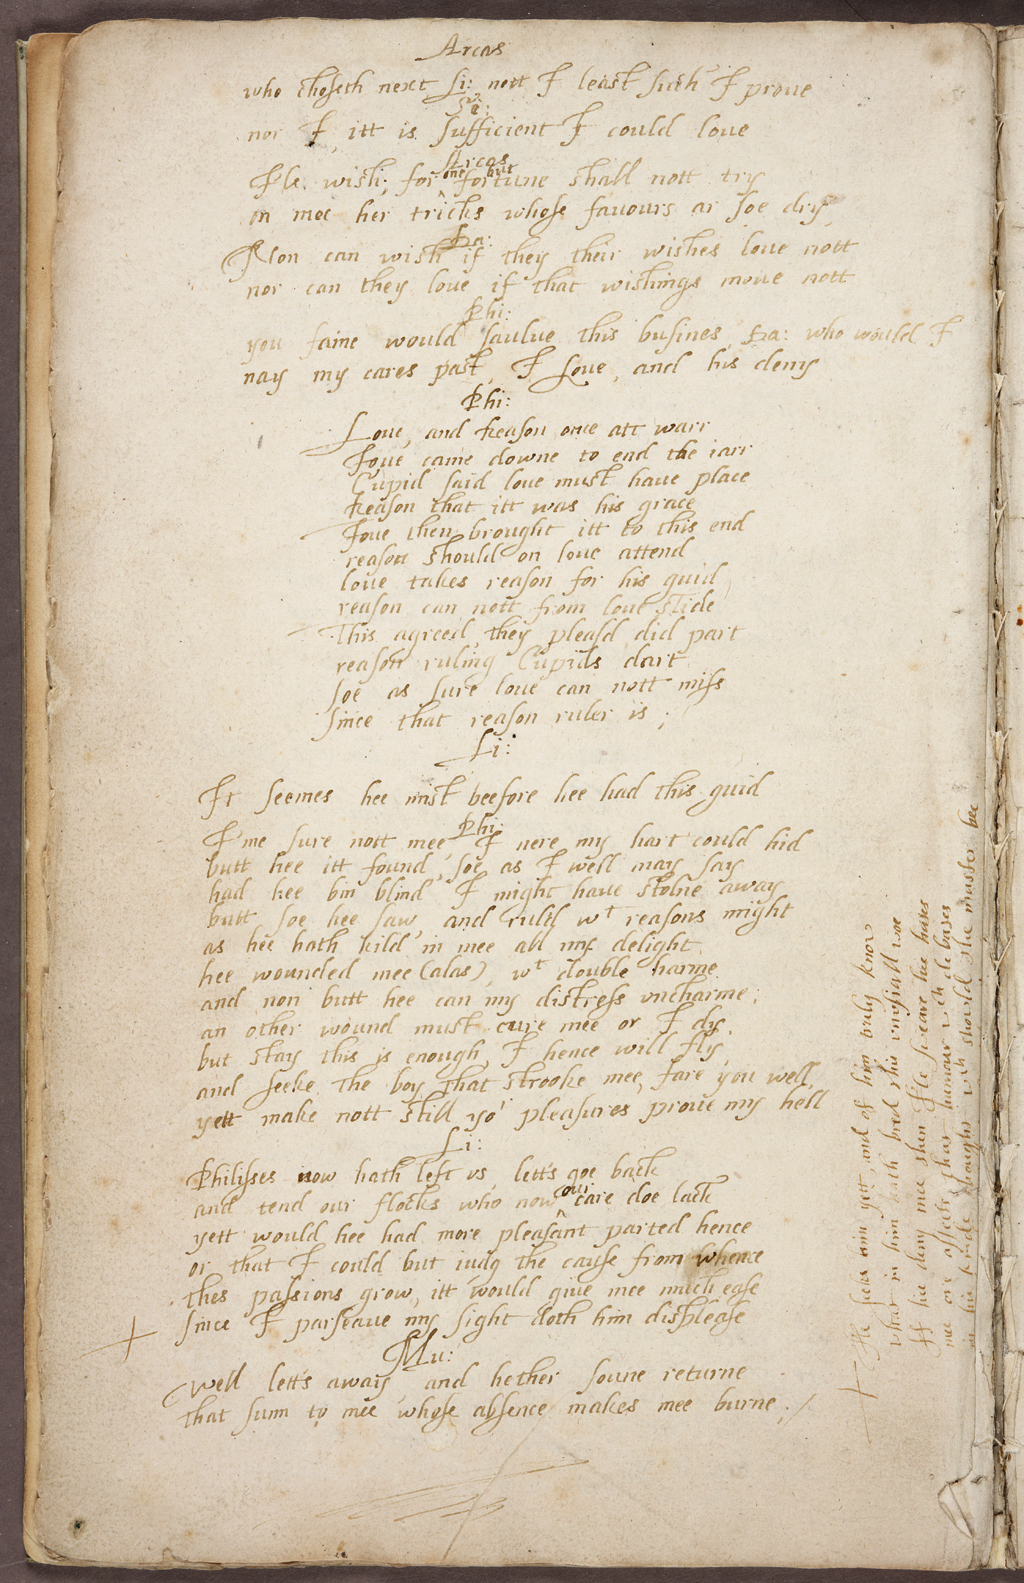 Arcas
who choseth next Li: nott I least such I prove
Si:
nor I, itt is sufficient I could love
Arcas
Ile wish, for one fortune butt shall nott try
on mee her tricks whose favours ar soe dry
Da:
Non can wish if they their wishes love nott
nor can they love if that wishings move nott
Phi:
you faine would saulve this busines, Da: who would I
nay my cares past, I love, and his deny
Phi:
Love, and Reason once att warr
Jove came downe to end the iarr
Cupid said love must have place
Reason that itt was his grace
Jove then brought itt to this end
reason should on love attend
love takes reason for his guid
reason can nott from love slide
This agreed, they pleasd did part
reason ruling Cupids dart
soe as sure love can nott miss
since that reason ruler is;
Li:
It seemes hee mist beefore hee had this guid
Phi:
I'me sure nott mee I nere my hart could hid
butt hee itt found, soe as I well may say
had hee bin blind I might have stolne away
butt soe hee saw, and ruld wt reasons might
as hee hath kild in mee all my delight
hee wounded mee (alas), wt double harme
and non butt hee can my distress uncharme;
an other wound must cure mee or I dy,
but stay this is enough, I hence will fly
and seeke the boy that strooke mee, fare you well,
yett make nott still yor pleasures prove my hell
Li:
Philisses now hath left us, letts goe back
and tend our flocks who now our care doe lack
yett would hee had more pleasant parted hence
or that I could but iudg the cause from whence
thes passions grow, itt would give mee much ease
since I parseave my sight doth him displease
Mu:
Well letts away, and hether soune returne
that sunn to mee whose absence makes mee burne;
Ile seeke him yett, and of him truly know
what in him hath bred this unusiall woe
If hee deny mee then Ile sweare hee hates
mee or affects that humour wch debates
in his kinde thoughts wch should the master bee